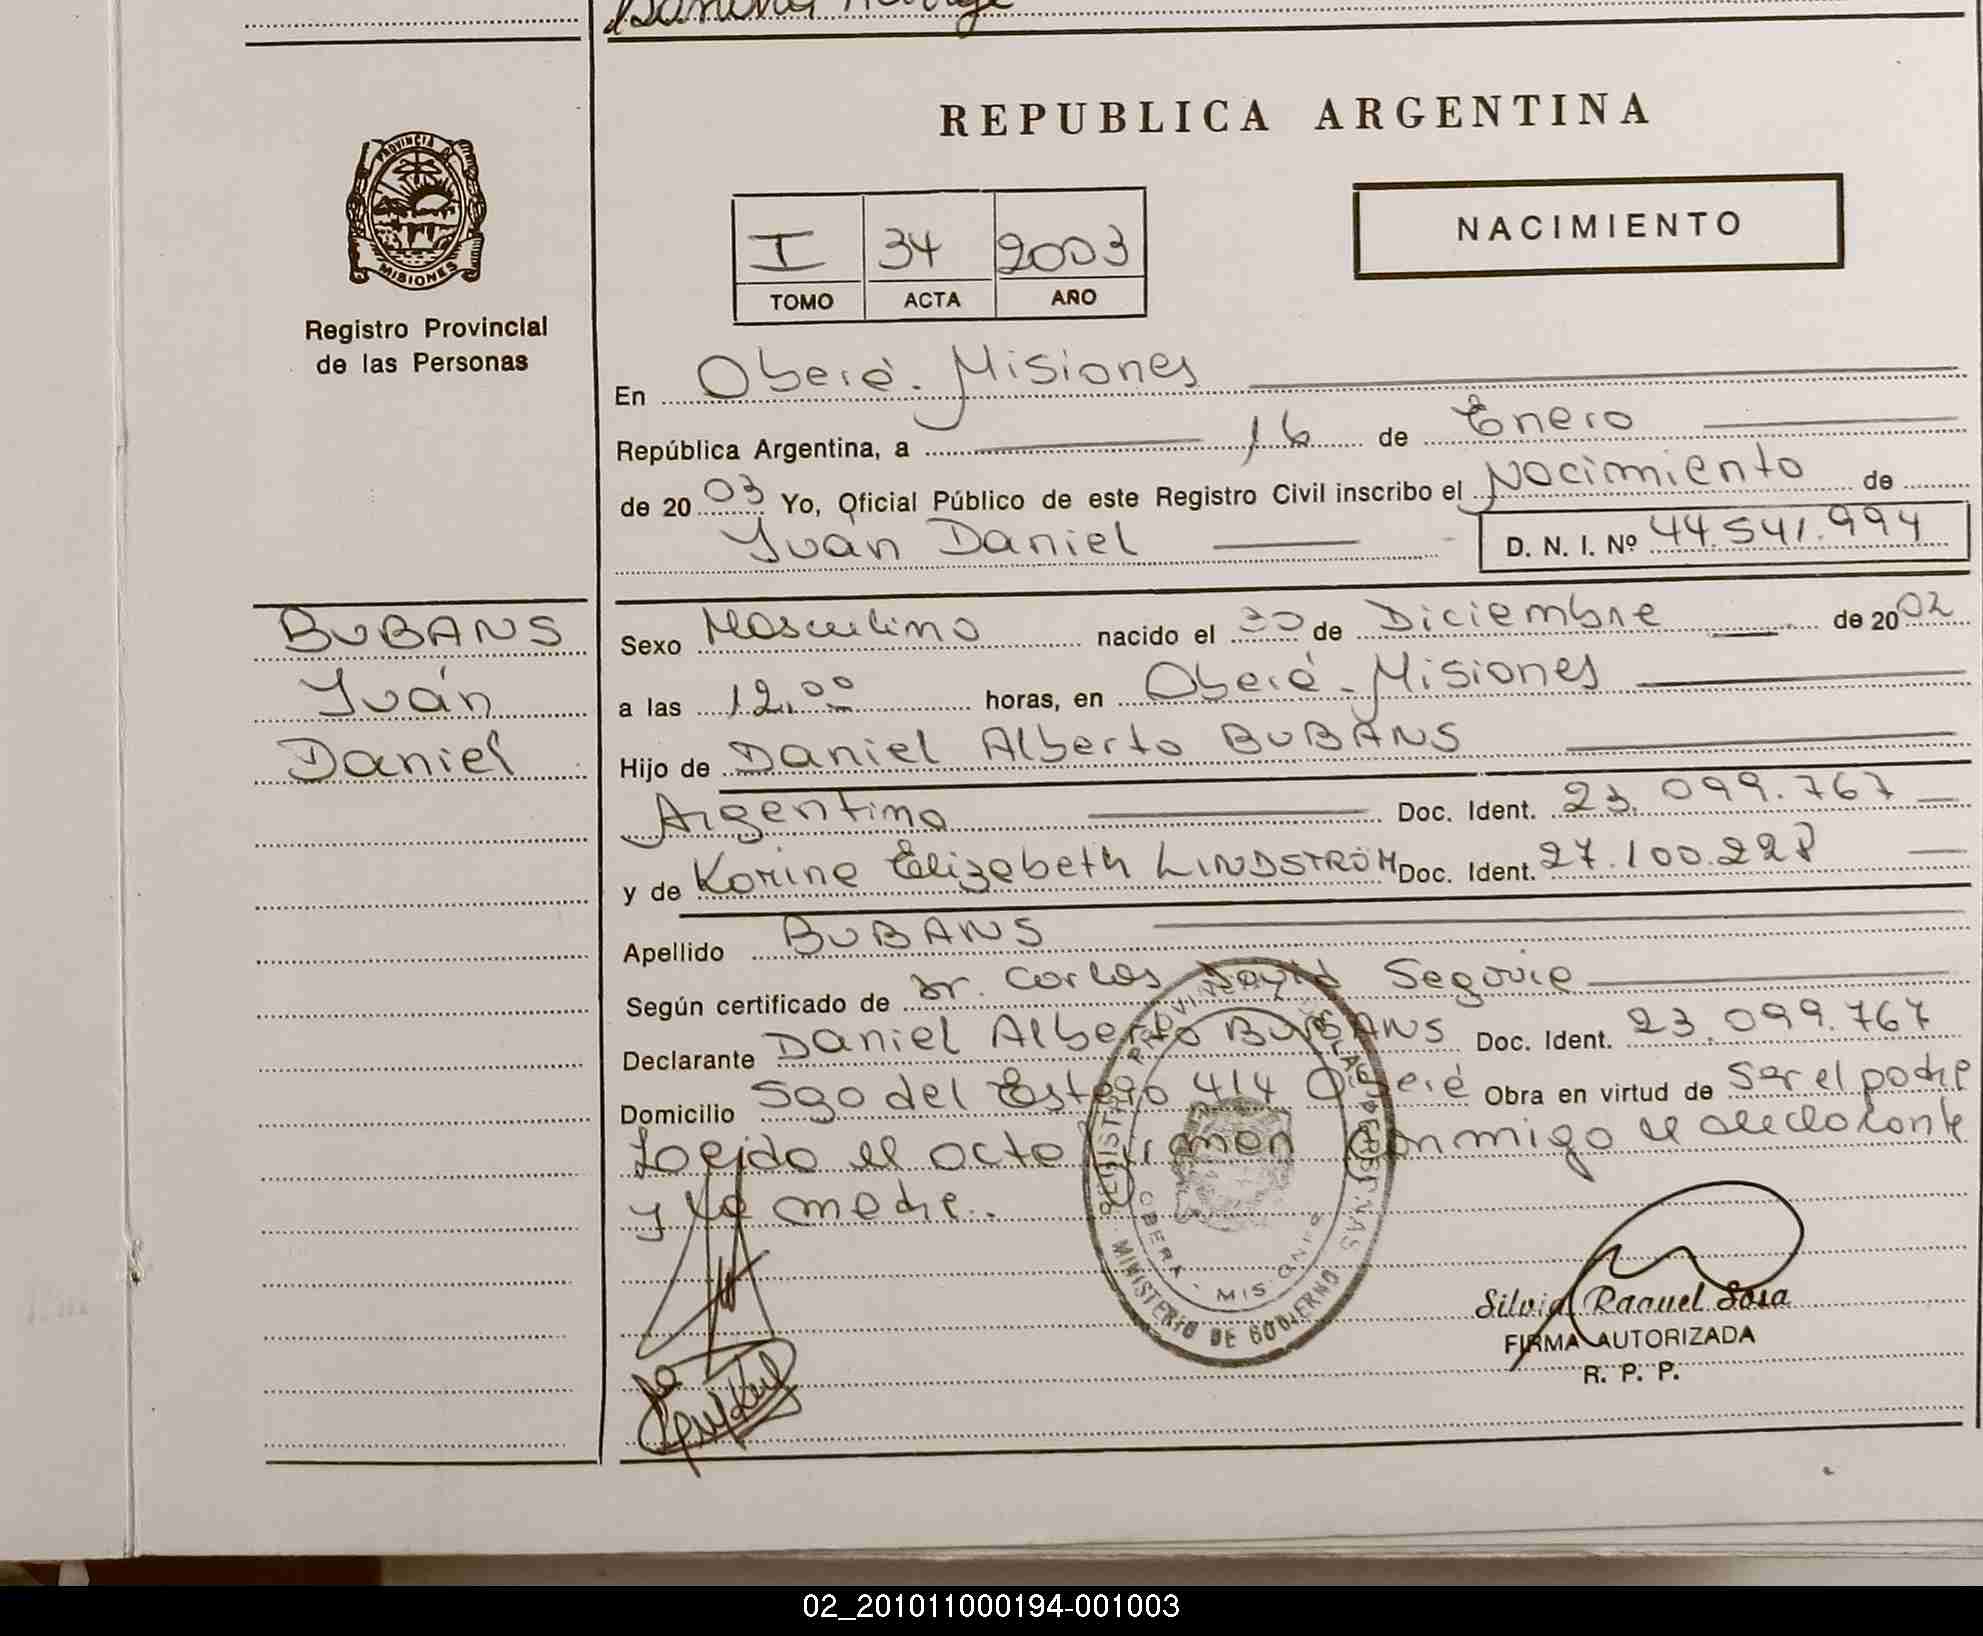 REPUBLICA ARGENTINA
PROVINCIA DE
MISIONES
Registro Provincial
de las Personas
I 34 2003
TOMO ACTA AÑO
NACIMIENTO
En Oberá - Misiones
República Argentina, a 16 de Enero
de 2003 Yo, Oficial Público de este Registro Civil inscribo el Nacimiento de
Iván Daniel D. N. I. Nº 44.541.994
BUBANS
Iván
Daniel
Sexo Masculino nacido el 30 de Diciembre de 2002
a las 12,00 horas, en Oberá - Misiones
Hijo de Daniel Alberto BUBANS
Argentino Doc. Ident. 23.099.767
y de Karina Elizabeth LINDSTRÖM Doc. Ident. 27.100.228
Apellido BUBANS
Según certificado de Dr. Carlos David Segovia
Declarante Daniel Alberto BUBANS Doc. Ident. 23.099.767
Domicilio Sgo del Estero 414 Oberá Obra en virtud de ser el padre
Leida el acta firman conmigo el declarante
y la madre.
MINISTERIO DE GOBIERNO
OBERA - MISIONES
Silvia Raquel Sosa
FIRMA AUTORIZADA
R. P. P.
02_201011000194-001003